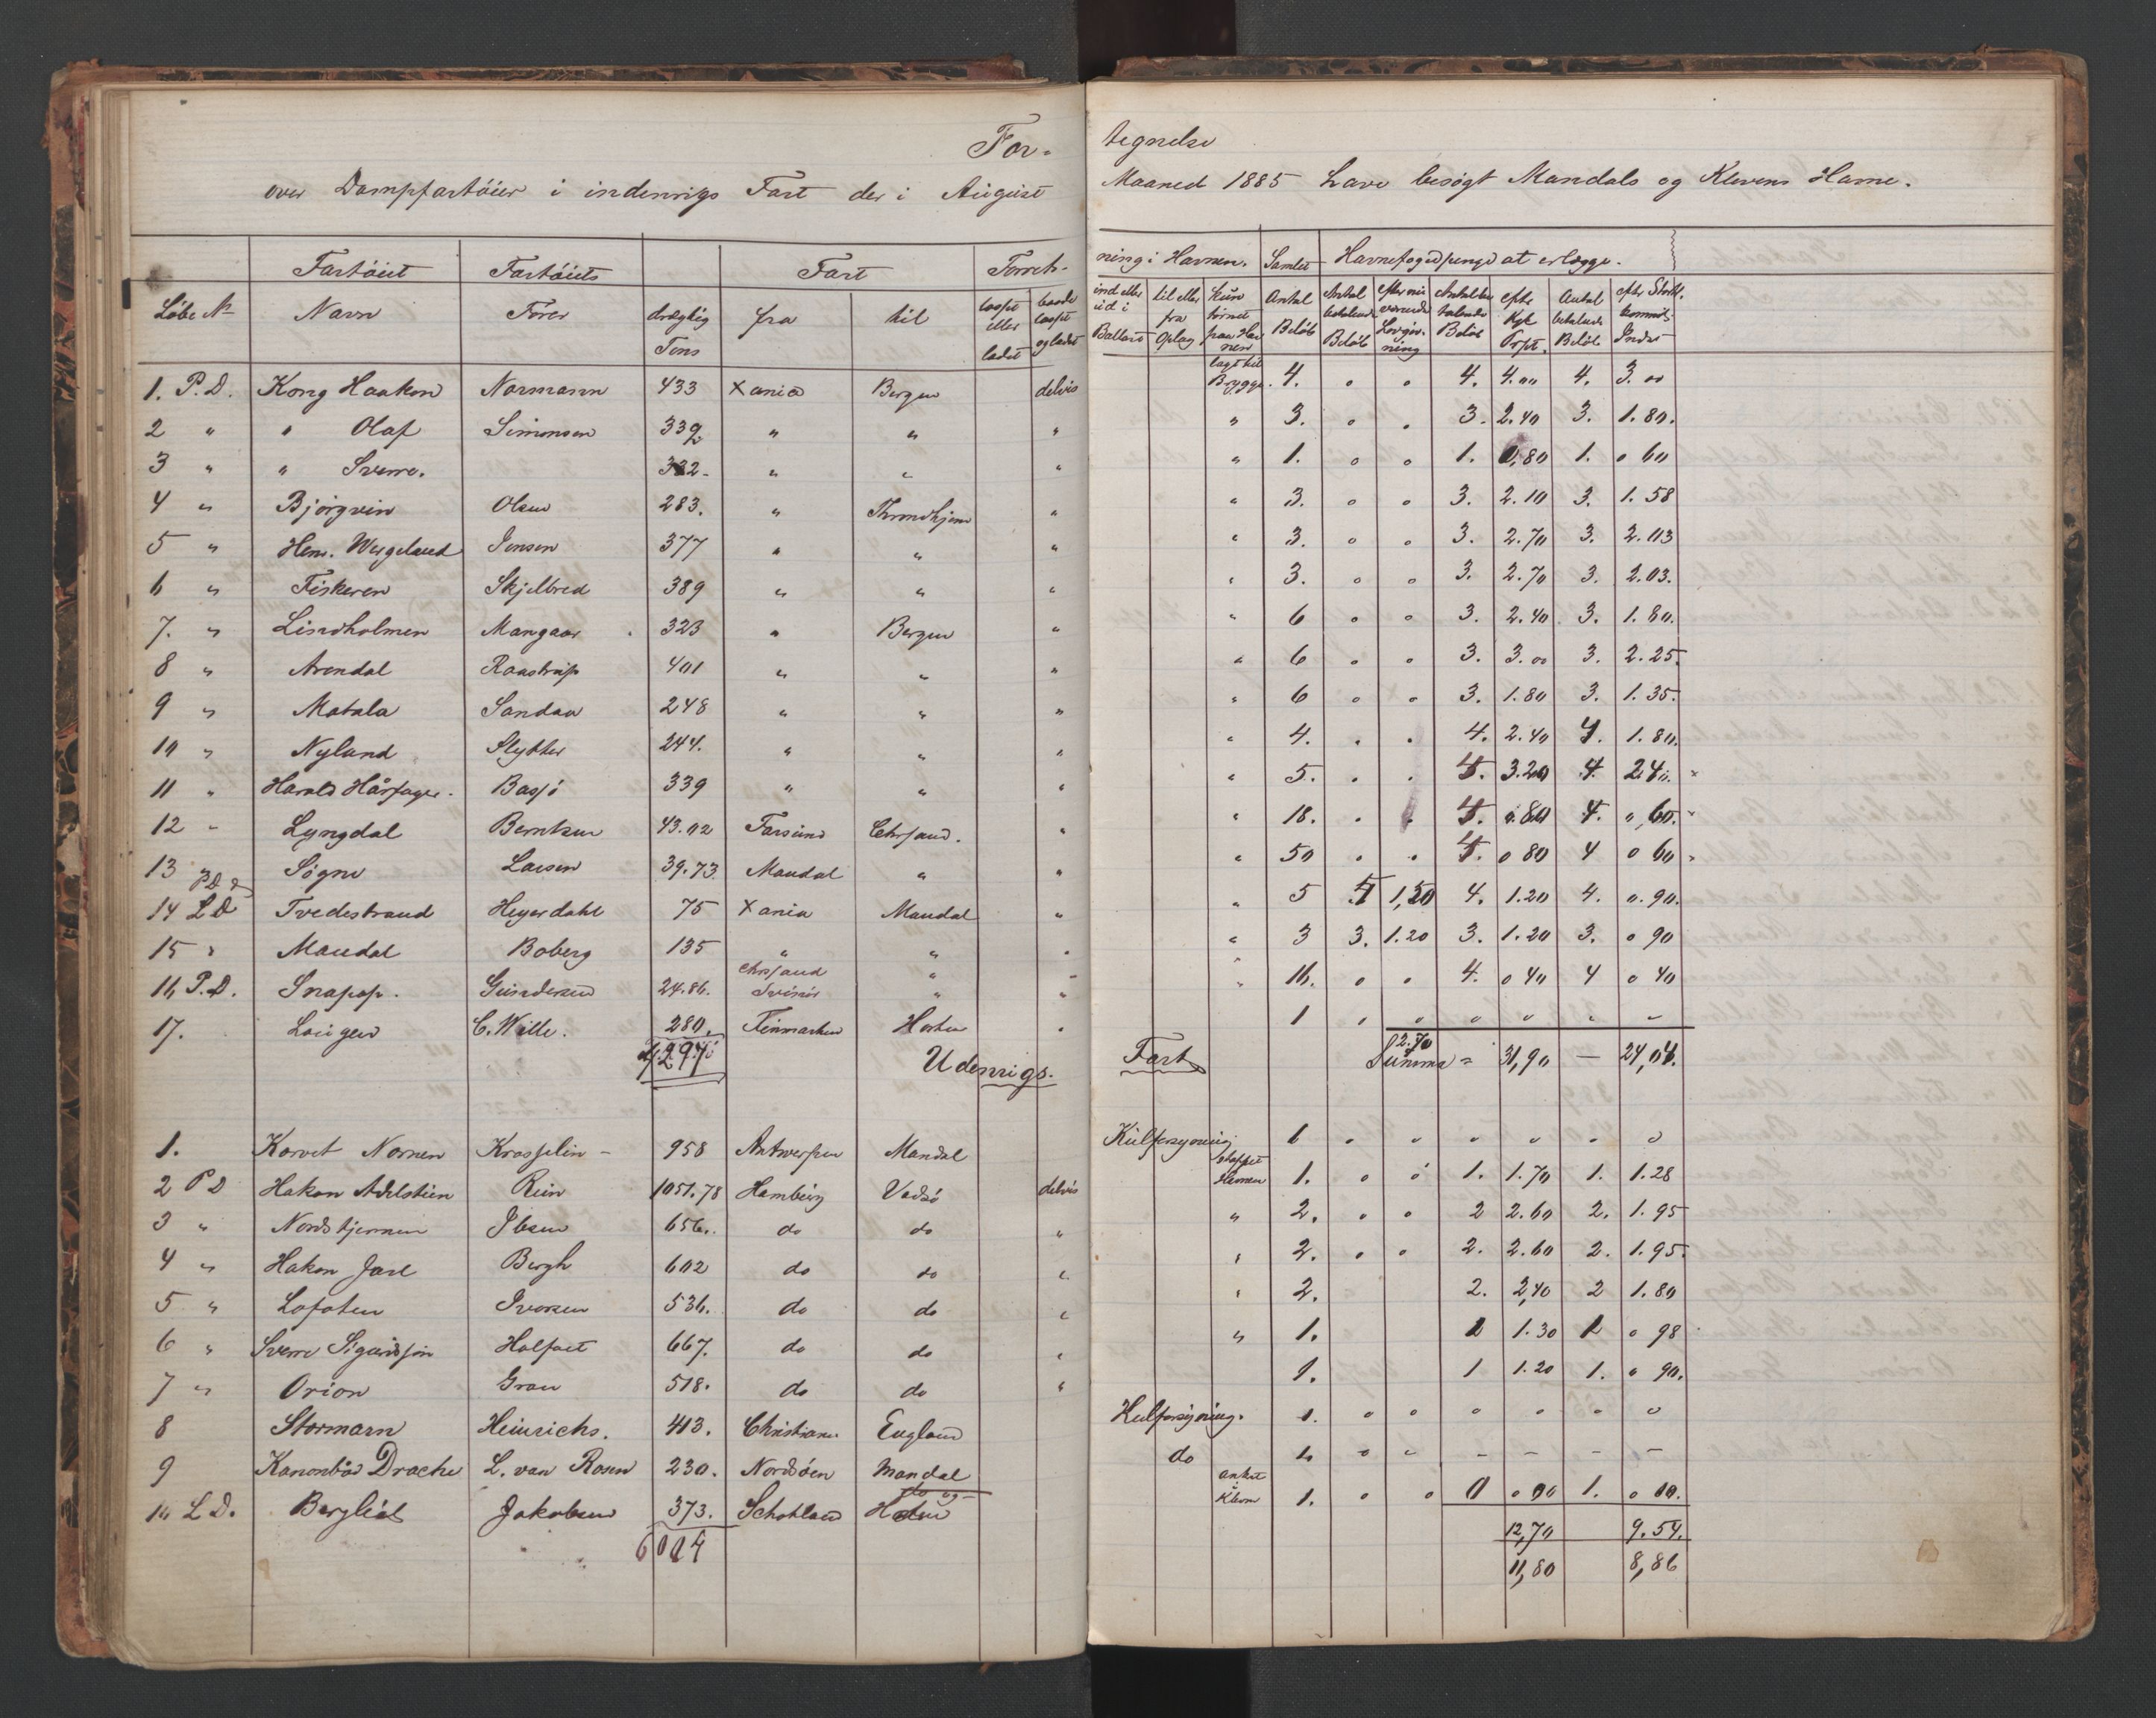 For-
over Dampfartöier i indenrigs Fart der i August
Fartöiet Fartöiets Fart Forret-
Löbe No Navn Förer drægtig Tons fra til losset eller ladet baade losset og ladet
1. P.D. Kong Haakon Normann 433 Xania Bergen delvis
2 " " Olaf Simonsen 339 " " "
3 " " Sverre. 322- " " "
4 " Bjørgvin Olsen 283. " Throndhjem "
5 " Hens. Wergeland Jensen 377 " " "
6 " Fiskeren Skjelbred 389 " " "
7. " Lindholmen Mangaar 323 " Bergen "
8 " Arendal Raastrup 401 " " "
9 " Motala Sandaa 248 " " "
10 " Nyland Slytter 244. " " "
11 " Harald Hårfager. Basjö 339 " " "
12 " Lyngdal Berntsen 43.02 Farsund Chrsand. "
13 P.D. Sögne Larsen 39.73 Mandal " "
14 L D Tvedestrand Heyerdahl 75 Xania Mandal "
15 " Mandal Boberg 135 " " "
16 P.D. Snapop. Gundersen 24.86. Chrsand Svinör " "
17. Lougen C. Wille. 280. Finmarken Horten "
4297
Udenrigs.
1. Korvet Nornen Krosselin - 958 Antwerpen Mandal
2 P D Hakon Adelstein Rein 1051.78 Hamburg Vadsö delvis
3 " Nordstjernen Ibsen 656. do do "
4 " Hakon Jarl Bergh 602 do do "
5 " Lofoten Iversen 536. do do "
6 " Sverre Sigurdssön Halfaet 667. do do "
7 " Orion Gran 518. do do "
8 Stormarn Heinrichs. 413. Christiania England
9 Kanonbåd Drache L. van Rosen 230. Nordsöen Mandal
10 L D. Bergliot Jakobsen 373. Schotland do og Horten
6004
tegnelse
Maaned 1885 have besøgt Mandals og Klevens Havne.
ning i Havnen. Samlet Havnefogedpenge at erlægge.
ind eller ud i Ballast til eller fra Oplag kun törnet paa Havnen Antal Belöb Antal betalende Belöb efter nuværende Lovgivning Antal betalende Belöb efter Kgl. Prpt. Antal betalende Belöb efter Storth. kommit. Indst
lagt til Brygge. 4. " " 4. 4.00 4. 3.00
" 3. " " 3. 2.40 3. 1.80.
" 1. " " 1. 0,80 1. " 60
" 3. " " 3. 2.10 3. 1.58
" 3. " " 3. 2.70 3. 2.03
" 3. " " 3. 2.70 3. 2.03.
" 6 " " 3. 2.40 3. 1.80.
" 6 " " 3. 3.00 3. 2.25.
" 6 " " 3. 1.80 3. 1.35.
" 4. " " 4. 2.40 4. 1.80.
" 5. " " 4. 3.20 4. 2.40.
" 18. " " 4. ".80 4. ",60.
" 50 " " 4. " 80 4 " 60
" 5 1,50 4. 1.20 4. ".90.
" 3 3. 1.20 3. 1.20 3. " 90
" 16. " " 4. " 40 4 " 40
1 " " " " " "
Fart 2.70 Summa = 31,90 — 24,04.
Kulforsyning 1 " " " " " "
stoppet Havnen 1. " " 1. 1.70 1. 1.28
" 2. " " 2 2.60 2. 1.95
" 2. " " 2. 2.60 2. 1.95.
" 2. 2. 2,40 2 1.80
" 1. 1 1.30 1 " 98
1. 1 1.20 1. " 90.
Kulforsyning. 1. " " " " " "
do 1 " " - - - -
anket Kleven 1. " " 0 " 00 1. " 00.
12,70 9.54.
11,80 8,86